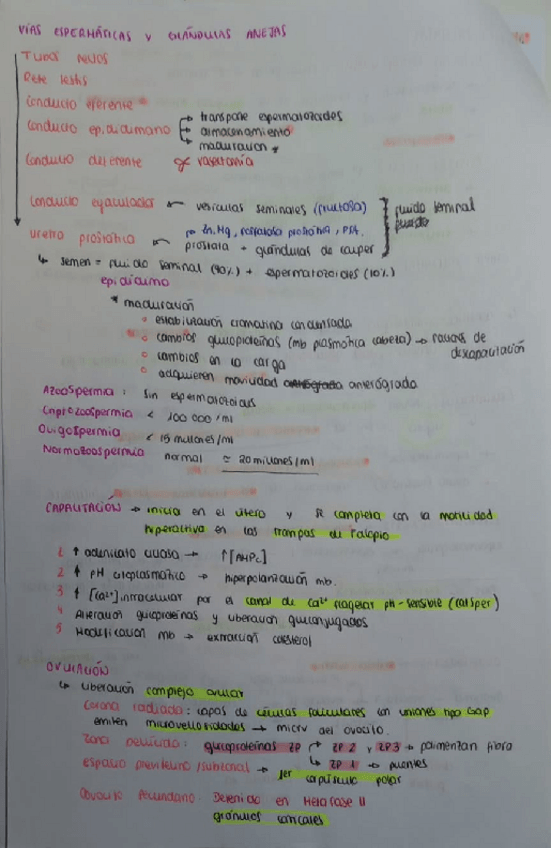 VÍAS ESPERMÁTICAS Y GLÁNDULAS ANEJAS
TUBOS RECTOS
Rete testis
Conducto eferente
Conducto epididimario → transporte espermatozoides
→ almacenamiento
→ maduración
Conducto deferente vasectomía
Conducto eyaculador ← vesículas seminales (fructosa)
fluido seminal
Uretra prostática ← Zn, Mg, fosfatasa prostática, PSA
próstata + glándulas de cowper
↳ semen = fluido seminal (90%) + espermatozoides (10%)
epidídimo
* maduración
○ estabilización cromatina condensada
○ cambios glucoproteínas (mb plasmática cabeza) → factores de descapacitación
○ cambios en la carga
○ adquieren movilidad anterógrada
Azoospermia: sin espermatozoides
Criptozoospermia < 100 000 /ml
Oligospermia < 15 millones/ml
Normozoospermia normal ≃ 20 millones/ml
CAPACITACIÓN → inicia en el útero y se completa con la motilidad
hiperactiva en las trompas de Falopio
1 ↑ adenilato ciclasa → ↑ [AMPc]
2 ↑ pH citoplasmático → hiperpolarización mb.
3 ↑ [Ca²⁺] intracelular por el canal de Ca²⁺ flagelar pH-sensible (catsper)
4 Alteración glucoproteínas y liberación gluconjugados
5 Modificación mb → extracción colesterol
OVULACIÓN
↳ Liberación complejo ovular
Corona radiada: capas de células foliculares con uniones tipo Gap
emiten microvellosidades → microv del ovocito.
Zona pelúcida: glucoproteínas ZP → ZP 2 y ZP3 → polimerizan fibra
↳ ZP 1 → puentes
espacio previtelino/subzonal → 1er corpúsculo polar
Ovocito secundario: Detenido en Metafase II
gránulos corticales